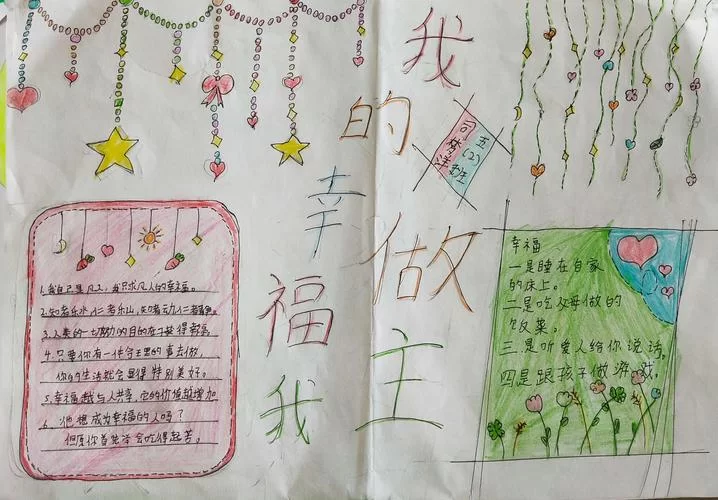 我的幸福我做主
五(2)班
司梦洋
1.我自己是凡人,我只求凡人的幸福。
2.知者乐水,仁者乐山,知者动,仁者静。
3.人类的一切努力的目的在于获得幸福
4.只要你有一件合理的事去做,
你的生活就会显得特别美好。
5.幸福越与人共享,它的价值越增加
6.你想成为幸福的人吗?
但愿你首先学会吃得起苦。
幸福
一是睡在自家
的床上。
二是吃父母做的
饭菜。
三是听爱人给你说话,
四是跟孩子做游戏。